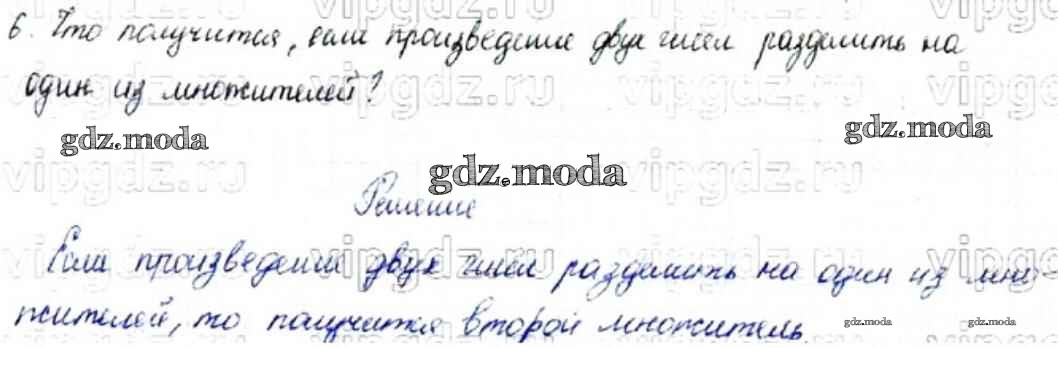 6. Что получится, если произведение двух чисел разделить на
один из множителей?
gdz.moda
gdz.moda
gdz.moda
Решение
Если произведение двух чисел разделить на один из мно-
жителей, то получится второй множитель.
gdz.moda
gdz.moda
vipgdz.ru